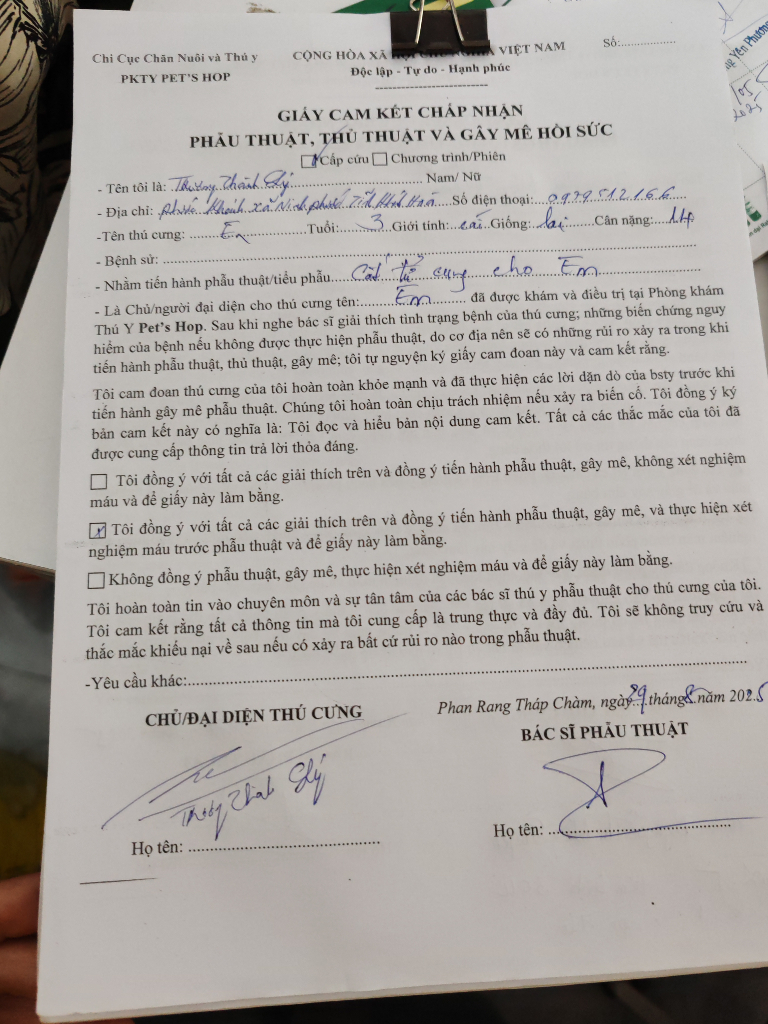 Chi Cục Chăn Nuôi và Thú y
PKTY PET'S HOP
CỘNG HÒA XÃ HỘI CHỦ NGHĨA VIỆT NAM
Độc lập - Tự do - Hạnh phúc
Số:
GIẤY CAM KẾT CHẤP NHẬN
PHẪU THUẬT, THỦ THUẬT VÀ GÂY MÊ HỒI SỨC
Cấp cứu Chương trình/Phiên
- Tên tôi là: Thành Nam/ Nữ
- Địa chỉ: phước Khánh xã Ninh phước Tỉnh Khánh Hoà Số điện thoại: 0979512166
-Tên thú cưng: Én Tuổi: 3 Giới tính: cái Giống: lai Cân nặng: 14
- Bệnh sử:
- Nhằm tiến hành phẫu thuật/tiểu phẫu Cắt tử cung cho Em
- Là Chủ/người đại diện cho thú cưng tên: Em đã được khám và điều trị tại Phòng khám
Thú Y Pet's Hop. Sau khi nghe bác sĩ giải thích tình trạng bệnh của thú cưng; những biến chứng nguy
hiểm của bệnh nếu không được thực hiện phẫu thuật, do cơ địa nên sẽ có những rủi ro xảy ra trong khi
tiến hành phẫu thuật, thủ thuật, gây mê; tôi tự nguyện ký giấy cam đoan này và cam kết rằng.
Tôi cam đoan thú cưng của tôi hoàn toàn khỏe mạnh và đã thực hiện các lời dặn dò của bsty trước khi
tiến hành gây mê phẫu thuật. Chúng tôi hoàn toàn chịu trách nhiệm nếu xảy ra biến cố. Tôi đồng ý ký
bản cam kết này có nghĩa là: Tôi đọc và hiểu bản nội dung cam kết. Tất cả các thắc mắc của tôi đã
được cung cấp thông tin trả lời thỏa đáng.
Tôi đồng ý với tất cả các giải thích trên và đồng ý tiến hành phẫu thuật, gây mê, không xét nghiệm
máu và để giấy này làm bằng.
Tôi đồng ý với tất cả các giải thích trên và đồng ý tiến hành phẫu thuật, gây mê, và thực hiện xét
nghiệm máu trước phẫu thuật và để giấy này làm bằng.
Không đồng ý phẫu thuật, gây mê, thực hiện xét nghiệm máu và để giấy này làm bằng.
Tôi hoàn toàn tin vào chuyên môn và sự tân tâm của các bác sĩ thú y phẫu thuật cho thú cưng của tôi.
Tôi cam kết rằng tất cả thông tin mà tôi cung cấp là trung thực và đầy đủ. Tôi sẽ không truy cứu và
thắc mắc khiếu nại về sau nếu có xảy ra bất cứ rủi ro nào trong phẫu thuật.
-Yêu cầu khác:
Phan Rang Tháp Chàm, ngày 29 tháng 8 năm 2025
CHỦ/ĐẠI DIỆN THÚ CƯNG
BÁC SĨ PHẪU THUẬT
Họ tên:
Họ tên: